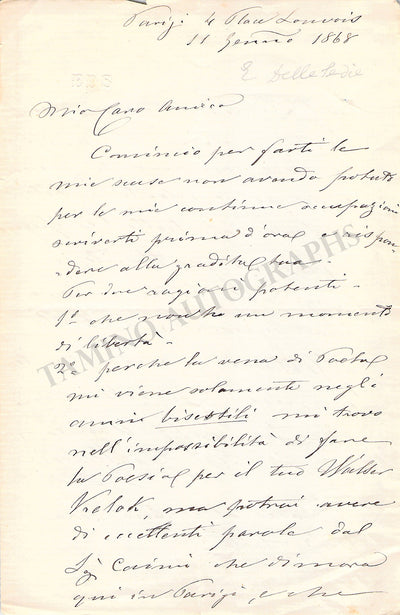 Parigi 4 Place Louvois
11 Gennºo 1868
E Delle Sedie
Mio Caro Amico
Comincio per farti le
mie scuse non avendo potuto
per le mie continue occupazioni
scriverti prima d'ora e rispon-
-dere alla gradita tua.
Per due ragioni potenti.
1ª che non ho un momento
di libertà.
2ª perchè la vena di Poeta
mi viene solamente negli
anni bisestili mi trovo
nell'impossibilità di fare
la Poesia per il tuo Walzer
ma potrai avere
di eccellenti parole dal
Sigr Caimi che dimora
qui in Parigi, e che
TAMINO AUTOGRAPHS